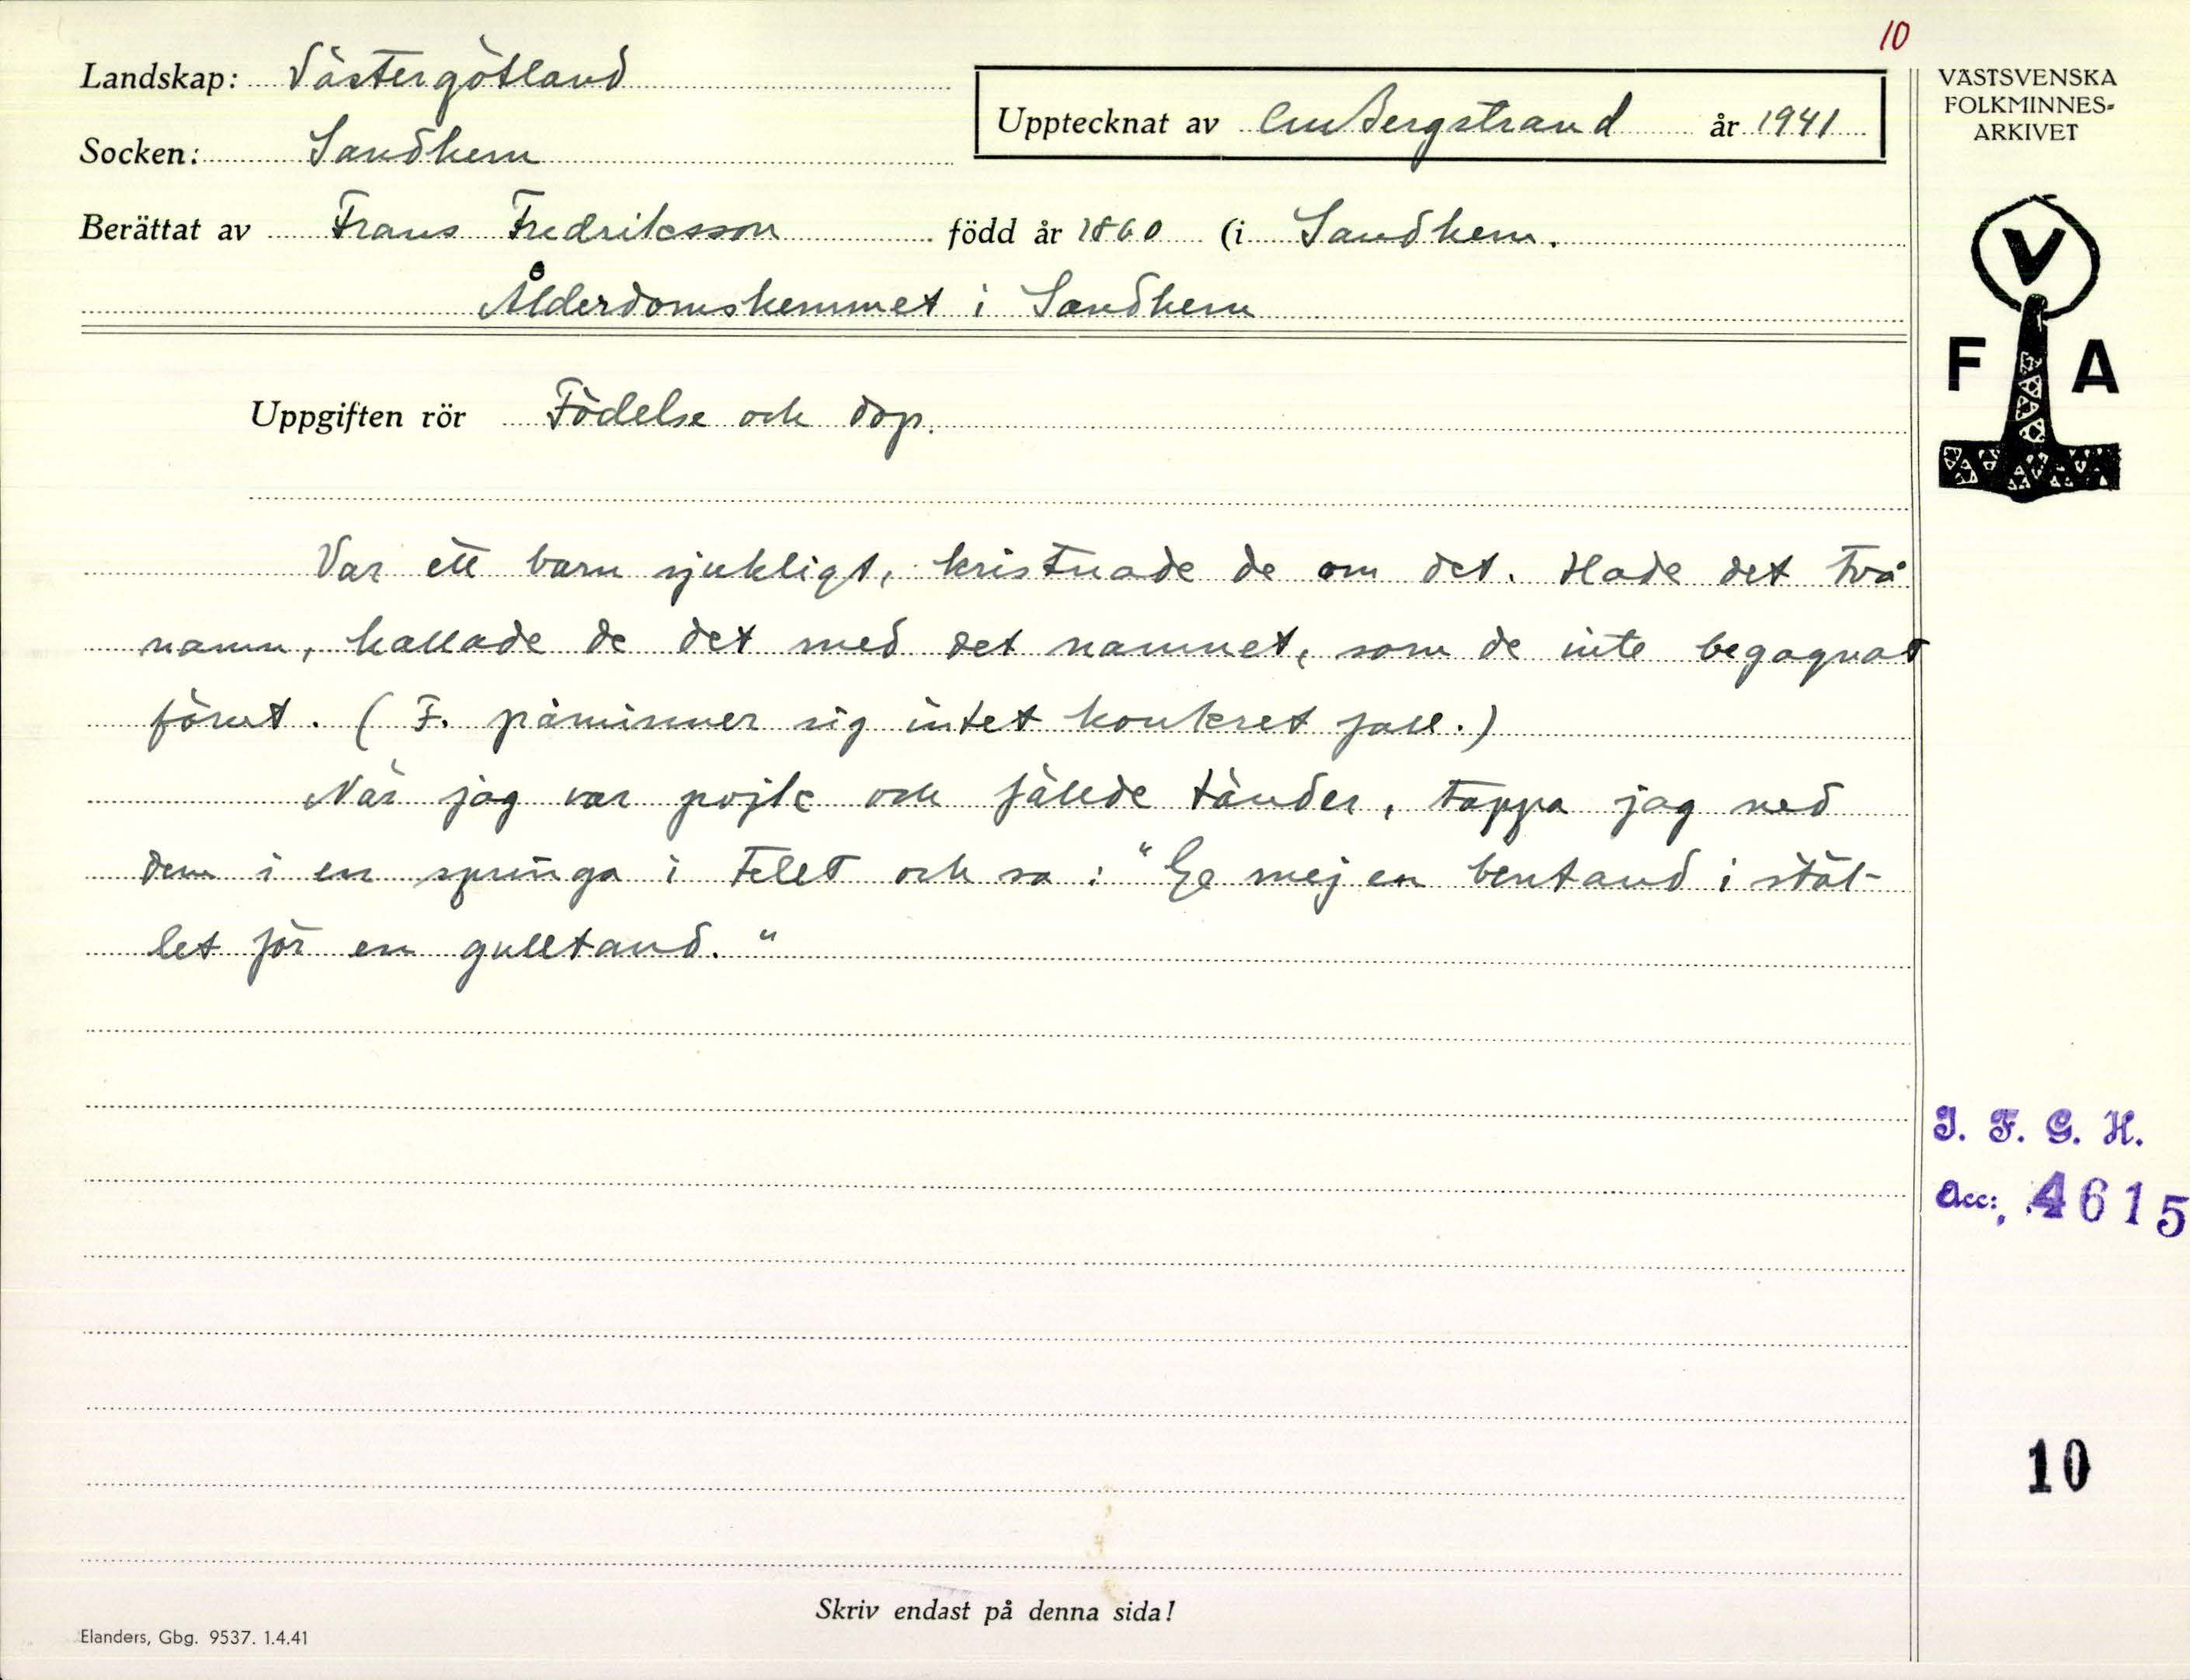 10
Landskap: Västergötland
Socken: Sandhem
Upptecknat av CM Bergstrand år 1941
Berättat av Frans Fredriksson född år 1860 (i Sandhem.
Ålderdomshemmet i Sandhem
Uppgiften rör Födelse och dop.
Var ett barn sjukligt, kristnade de om det. Hade det två
namn, kallade de det med det namnet, som de inte begagnat
förut. (F. påminner sig intet konkret fall.)
När jag var pojke och fällde tänder, tappa jag ned
dem i en springa i telet och sa: "Ge mej en bentand i stäl-
let för en gulltand."
Skriv endast på denna sida!
Elanders, Gbg. 9537. 1.4.41
VÄSTSVENSKA
FOLKMINNES-
ARKIVET
V
F A
I. F. G. H.
Acc: 4615
10